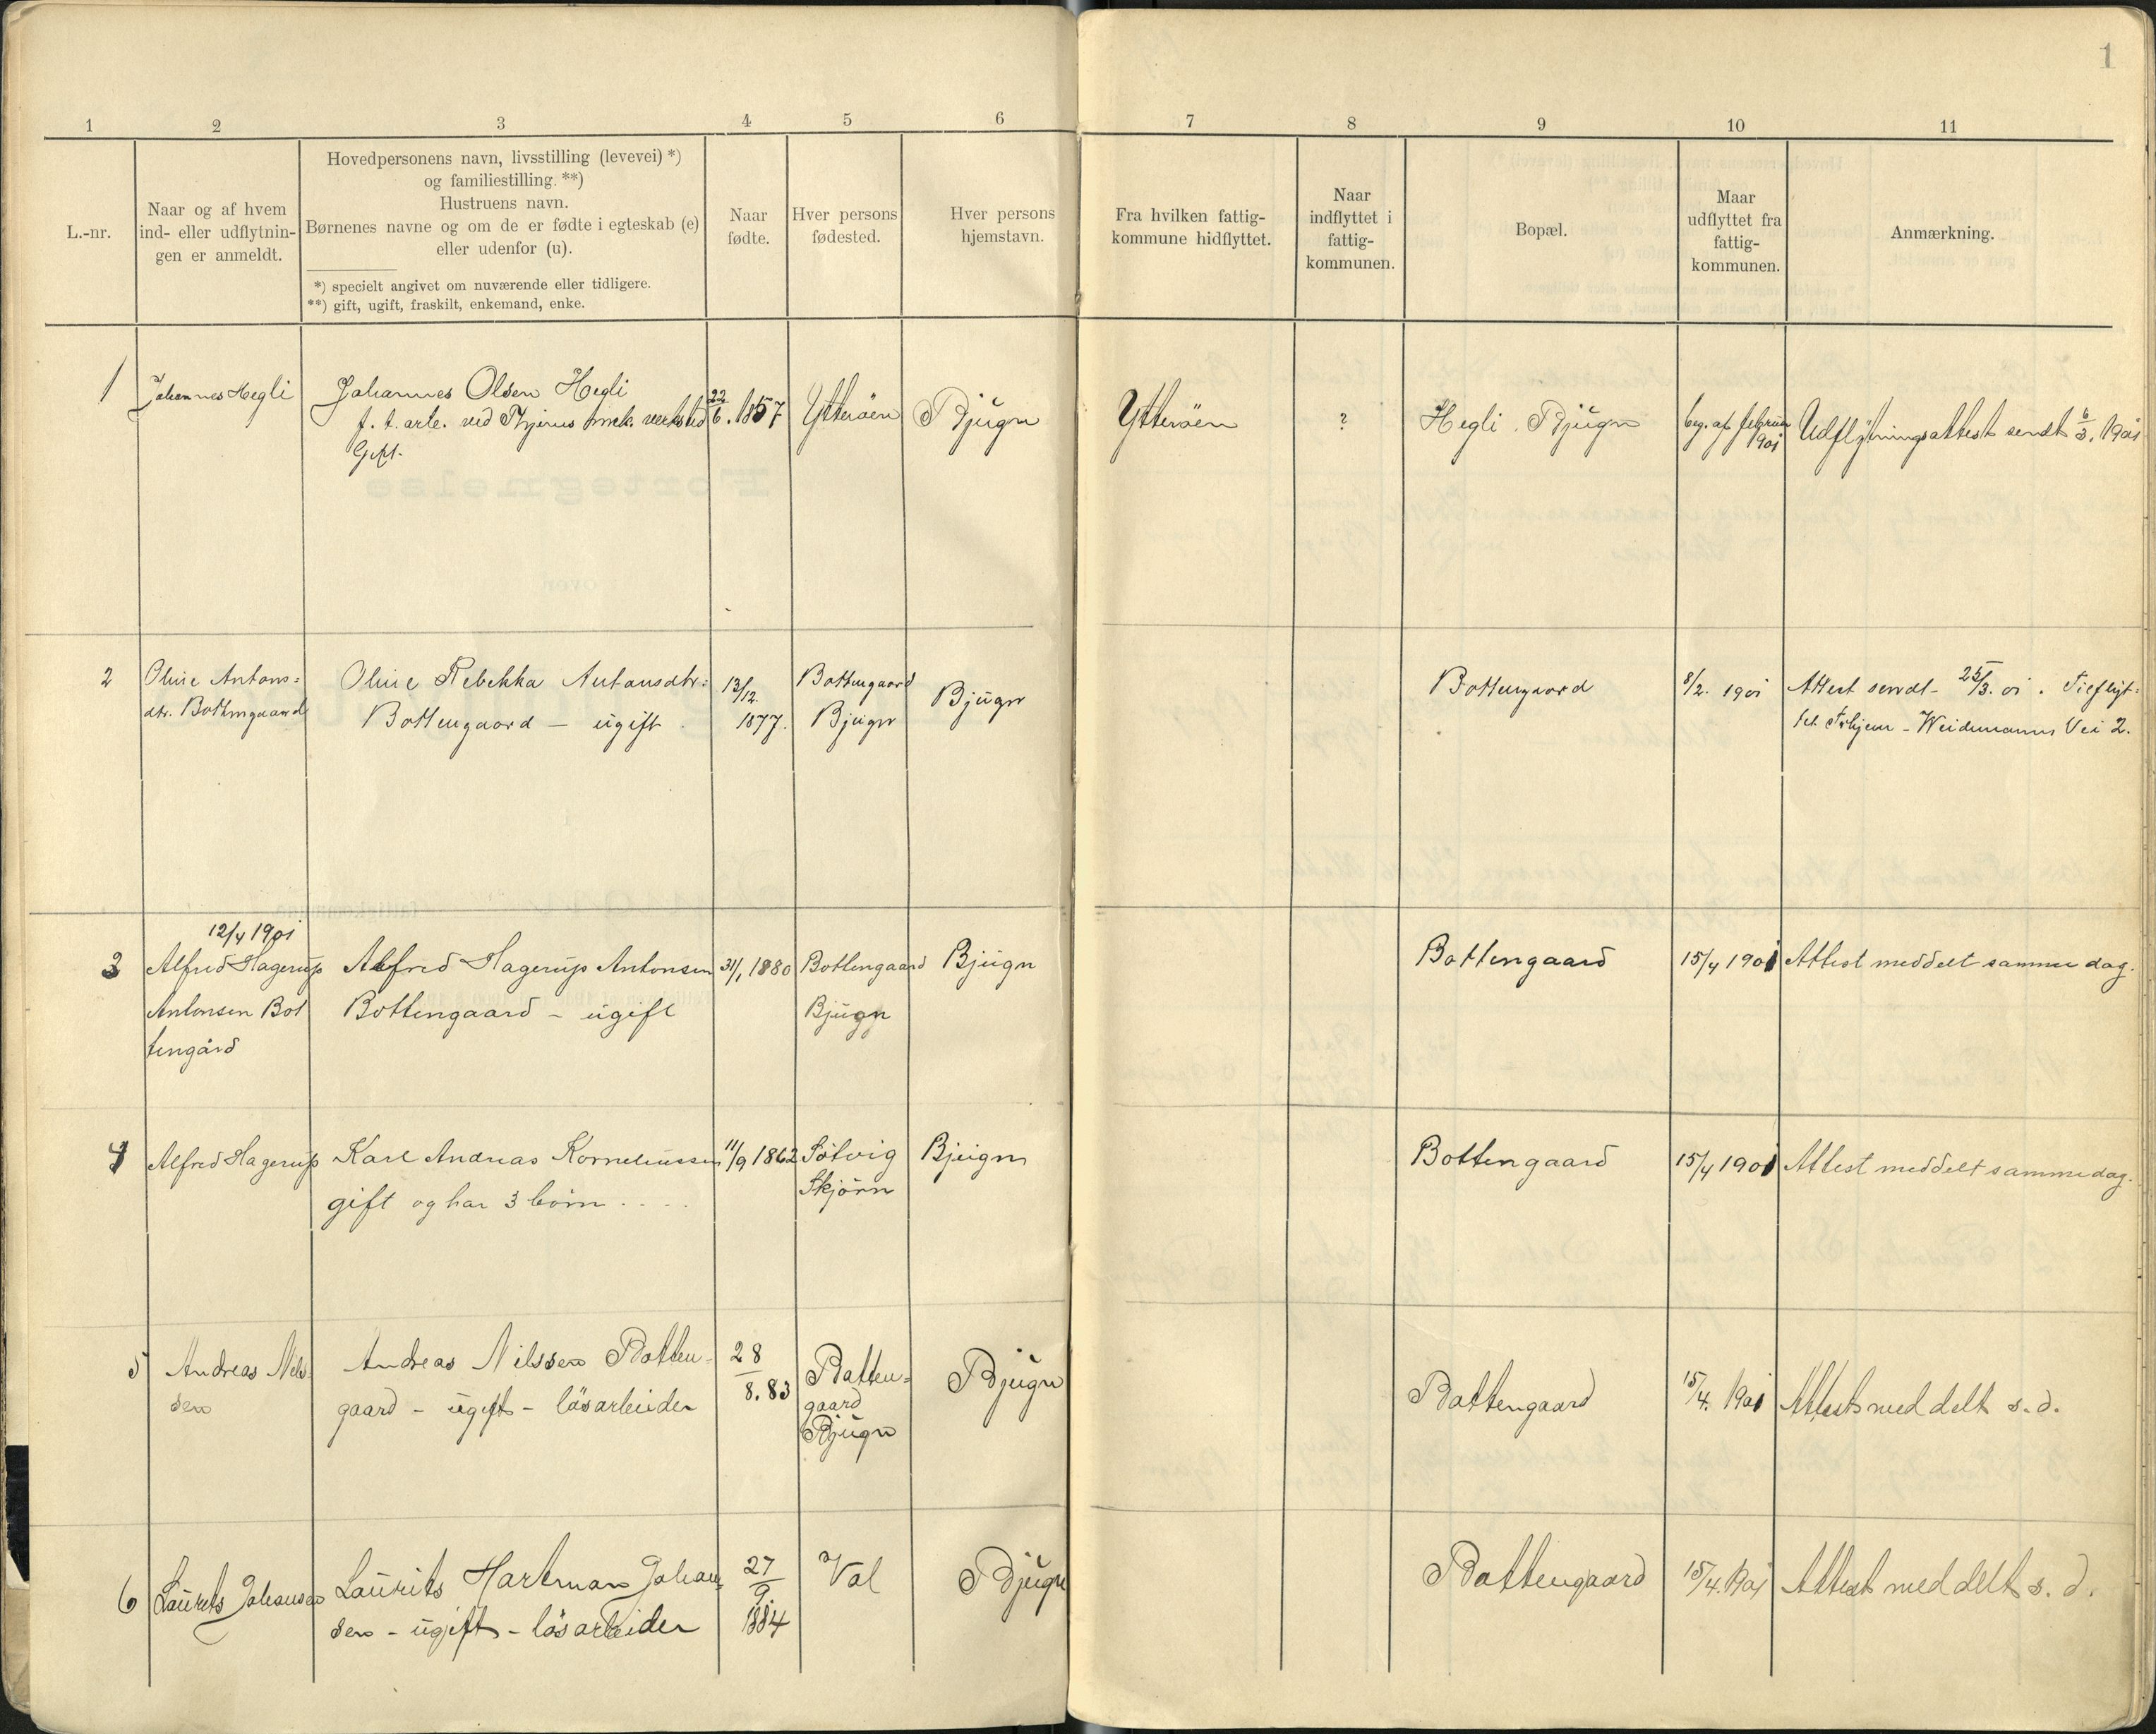 1
1 2 3 4 5 6 7 8 9 10 11
L.-nr.
Naar og af hvem
ind- eller udflytnin-
gen er anmeldt.
Hovedpersonens navn, livsstilling (levevei) *)
og familiestilling. **)
Hustruens navn.
Børnenes navne og om de er fødte i egteskab (e)
eller udenfor (u).
*) specielt angivet om nuværende eller tidligere.
**) gift, ugift, fraskilt, enkemand, enke.
Naar
fødte.
Hver persons
fødested.
Hver persons
hjemstavn.
Fra hvilken fattig-
kommune hidflyttet.
Naar
indflyttet i
fattig-
kommunen.
Bopæl.
Maar
udflyttet fra
fattig-
kommunen.
Anmærkning.
1
Johannes Hegli
Johannes Olsen Hegli
f. t. arb. ved mek. verksted
Gift.
22/6. 1857
Ytteröen
Bjugn
Ytteröen
?
Hegli. Bjugn
beg. af februar
1901
Udflytningsattest sendt 6/3. 1901
2
Oline Antons=
dtr. Bottengaard
Oline Rebekka Antonsdtr:
Bottengaard – ugift
13/12.
1877.
Bottengaard
Bjugn
Bjugn
Bottengaard
8/2. 1901
Attest sendt – 25/3. 01.
Weidemanns Vei 2.
3
12/4 1901
Alfred Hagerup
Antonsen Bot
tengård
Alfred Hagerup Antonsen
Bottengaard – ugift
31/1 1880
Bottengaard
Bjugn
Bjugn
Bottengaard
15/4 1901
Attest meddelt samme dag.
4
Alfred Hagerup
Karl Andreas Korneliussen
gift og har 3 börn . . . .
11/9 1862
Sötvig
Skjörn
Bjugn
Bottengaard
15/4 1901
Attest meddelt samme dag.
5
Andreas Nils-
sen
Andreas Nilssen Botten=
gaard – ugift – lösarbeider
28/8. 83
Botten=
gaard
Bjugn
Bjugn
Bottengaard
15/4. 1901
Attest meddelt s. d.
6
Laurits Johansen
Laurits Hartman Johan-
sen – ugift – lösarbeider
27/9.
1884
Val
Bjugn
Bottengaard
15/4. 1901
Attest meddelt s. d.